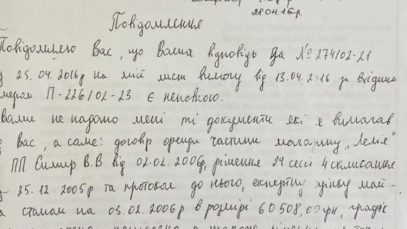 28.04.16р.
Повідомлення
Повідомляю Вас, що Ваша відповідь За № 274/02-21
25.04.2016р на мій лист вимогу від 13.04.2016 за вхідним
мером П-226/02-23 є неповною.
Вами не надано мені ті документи які я вимагав
вас, а саме: договір оренди частини магазину „Лелія"
ПП В.В від 02.02.2006р, рішення 24 сесії 4 скликання
25.12.2005р та протокол до нього, експертну оцінку май-
станом на 03.02.2006р в розмірі 60508, грн,